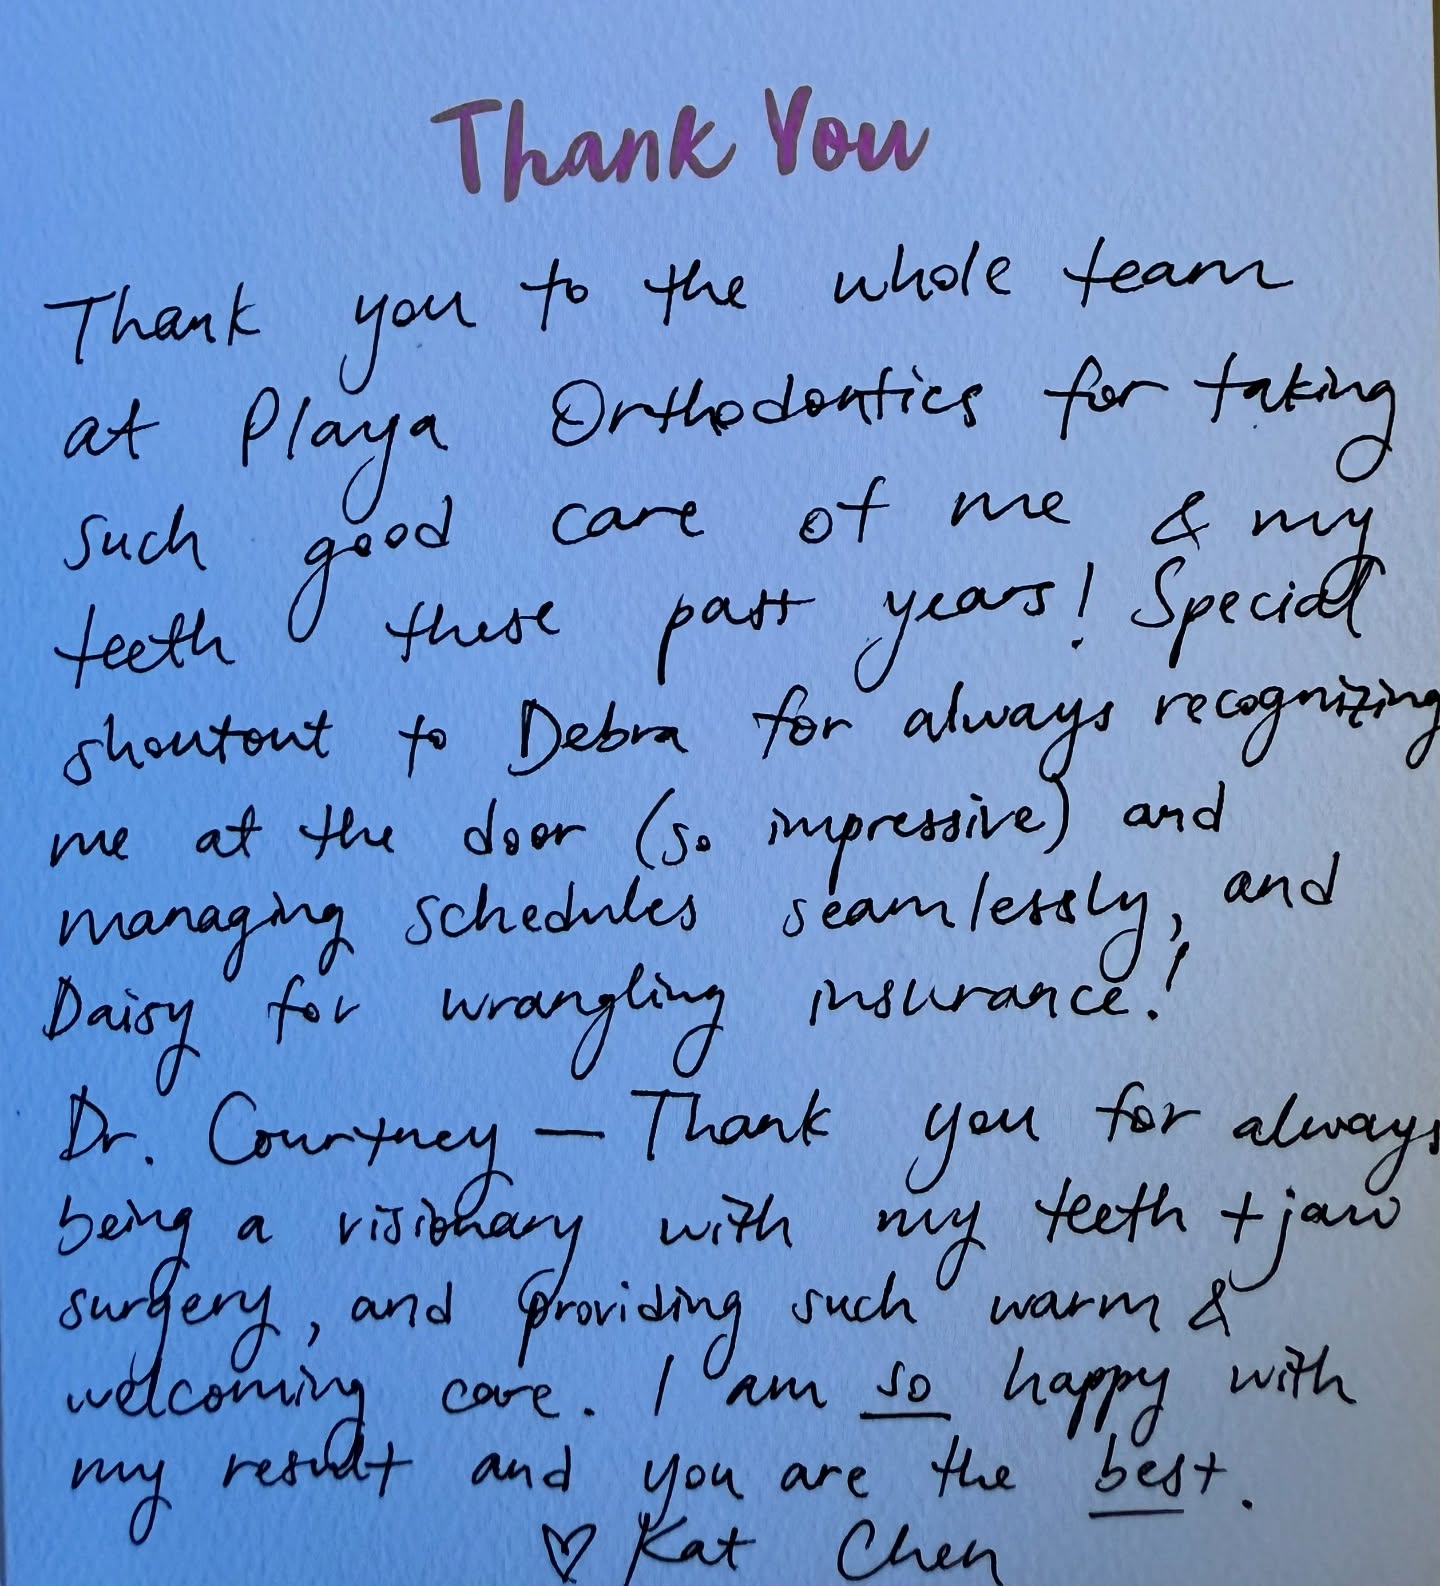 Thank You
Thank you to the whole team
at Playa Orthodontics for taking
such good care of me & my
teeth these past years! Special
shoutout to Debra for always recognizing
me at the door (so impressive) and
managing schedules seamlessly, and
Daisy for wrangling insurance!
Dr. Courtney — Thank you for always
being a visionary with my teeth + jaw
surgery, and providing such warm &
welcoming care. I am so happy with
my result and you are the best.
♡ Kat Chen